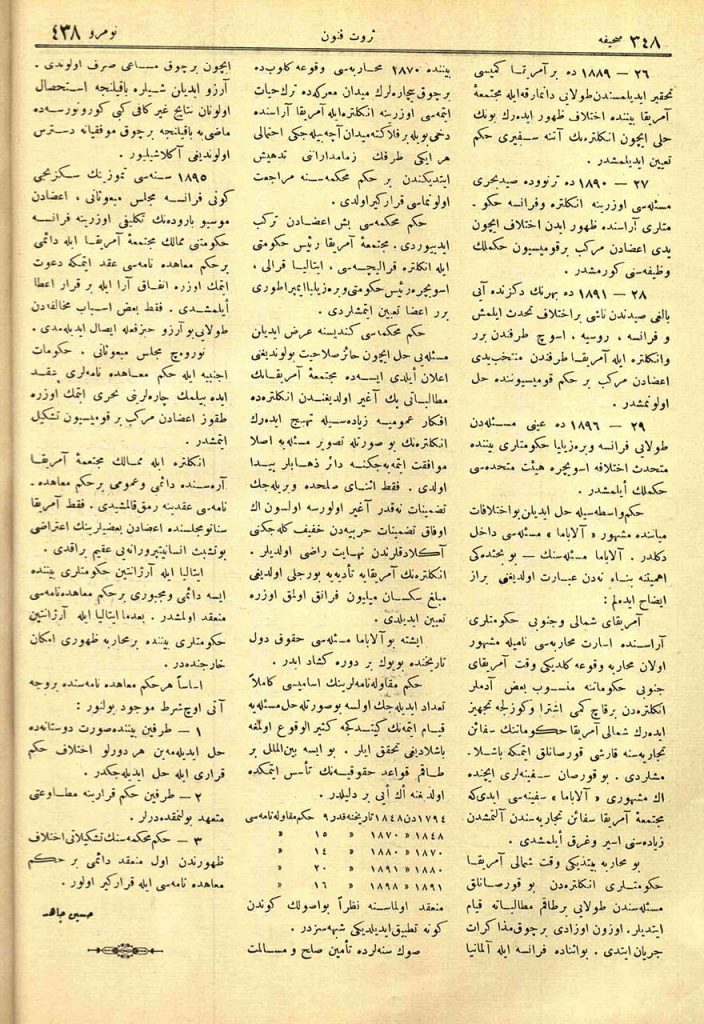 صحیفه ٣٤٨
ثروت فنون
نومرو ٤٣٨
٢٦ — ١٨٨٩ ده بر آمریقا کمیسی
تحقیر ایدیلمسندن طولایی دانمارقه ایله مجتمعۀ
آمریقا بیننده اختلاف ظهور ایده‌رك بونك
حلی ایچون انکلتره‌نك آتنه سفیری حکم
تعیین ایدیلمشدر .
٢٧ — ١٨٩٠ ده ترنووده صید بحری
مسئله‌سی اوزرینه انکلتره وفرانسه حکو ـ
متلری آراسنده ظهور ایدن اختلاف ایچون
یدی اعضادن مرکب بر قومیسیون حکملك
وظیفه‌سنی کورمشدر .
٢٨ — ١٨٩١ ده بهرنك دکزنده آیی
بالغی صیدندن ناشی بر اختلاف تحدث ایلمش
و فرانسه ، روسیه ، اسوچ طرفندن برر
وانکلتره ایله آمریقا طرفندن منتخب یدی
اعضادن مرکب بر حکم قومیسیوننده حل
اولونمشدر .
٢٩ — ١٨٩٦ ده عینی مسئله‌دن
طولایی فرانسه وبره‌زیلیا حکومتلری بیننده
متحدث اختلافه اسویچره هیئت متحده‌سی
حکملك ایلمشدر .
حکم واسطه‌سیله حل ایدیلن بو اختلافات
میاننده مشهور « آلاباما » مسئله‌سی داخل
دکلدر . آلاباما مسئله‌سنك — بو بحثده‌کی
اهمیتنه بناءً نه‌دن عبارت اولدیغنی براز
ایضاح ایده‌لم :
آمریقای شمالی وجنوبی حکومتلری
آراسنده اسارت محاربه‌سی نامیله مشهور
اولان محاربه وقوعه کلدیکی وقت آمریقای
جنوبی حکوماتنه منسوب بعض آدملر
انکلتره‌دن بر قاچ کمی اشترا وکوزلجه تجهیز
ایده‌رك شمالی آمریقا حکوماتنك سفائن
تجاریه‌سنه قارشی قورصانلق ایتمکه باشلا ـ
مشلردی . بو قورصان سفینه‌لری ایچنده
اك مشهوری « آلاباما » سفینه‌سی ایدی‌که
مجتمعۀ آمریقا سفائن تجاریه‌سندن آلتمشدن
زیاده‌سنی اسیر وغرق ایلمشدی .
بو محاربه بیتدیکی وقت شمالی آمریقا
حکومتلری انکلتره‌دن بو قورصانلق
مسئله‌سندن طولایی بر طاقم مطالباته قیام
ایتدیلر . اوزون اوزادی بر چوق مذاکرات
جریان ایتدی . بو اثناده فرانسه ایله آلمانیا
بیننده ١٨٧٠ محاربه‌سی وقوعه کلوب ده
بر چوق بیچاره‌لرك میدان معرکه‌ده ترك حیات
ایتمه‌سی اوزرینه انکلتره ایله آمریقا آراسنده
دخی بویله بر فلاکته میدان آچه‌بیله‌جکی احتمالی
هر ایکی طرفك زمامدارانی تدهیش
ایتدیکندن بر حکم محکمه‌سنه مراجعت
اولونماسی قرارکیر اولدی .
حکم محکمه‌سی بش اعضادن ترکب
ایدییوردی . مجتمعۀ آمریقا رئیس حکومتی
ایله انکلتره قرالیچه‌سی ، ایتالیا قرالی ،
اسویچره رئیس حکومتی وبره‌زیلیا ایمپراطوری
برر اعضا تعیین ایتمشلردی .
حکم محکمه‌سی کندیسنه عرض ایدیلن
مسئله‌یی حل ایچون حائز صلاحیت بولوندیغنی
اعلان ایلدی ایسه‌ده مجتمعۀ آمریقانك
مطالباتی پك آغیر اولدیغندن انکلتره‌ده
افکار عمومیه زیاده‌سیله تهیج ایده‌رك
انکلتره‌نك بو صورتله تصویر مسئله‌یه اصلا
موافقت ایتمه‌یه‌جکنه دائر ذهابلر پیدا
اولدی . فقط اثنای صلحده ویریله‌جك
تضمینات نه‌قدر آغیر اولورسه اولسون اك
اوفاق تضمینات حربیه‌دن خفیف کله‌جکنی
آکلادقلرندن نهایت راضی اولدیلر .
انکلتره‌نك آمریقایه تأدیه‌یه بورجلی اولدیغی
مبلغ سکسان میلیون فرانق اولمق اوزره
تعیین ایدیلدی .
ایشته بو آلاباما مسئله‌سی حقوق دول
تاریخنده بویوك بر دوره کشاد ایدر .
حکم مقاوله‌نامه‌لرینك اسامیسی کاملاً
تعداد ایدیله‌جك اولسه بو صورتله حل مسئله‌یه
قیام ایتمه‌نك کیتدکجه کثیر الوقوع اولمغه
باشلادیغی تحقق ایلر . بو ایسه بین‌الملل بر
طاقم قواعد حقوقیه‌نك تأسس ایتمکده
اولدیغنه اك ایی بر دلیلدر .
١٧٩٤ دن ١٨٤٨ تاریخنه قدر ٩ حکم مقاوله‌نامه‌سی
١٨٤٨ « ١٨٧٠ « ١٥ «
١٨٧٠ « ١٨٨٠ « ١٤ «
١٨٨٠ « ١٨٩١ « ٢٠ «
١٨٩١ « ١٨٩٨ « ١٦ «
منعقد اولماسنه نظراً بو اصولك کوندن
کونه تطبیق ایدیلدیکی شبهه‌سزدر .
صوك سنه‌لرده تأمین صلح و مسالمت
ایچون بر چوق مساعی صرف اولوندی .
آرزو ایدیلن شیلره باقیلنجه استحصال
اولونان نتایج غیر کافی کبی کورونورسه‌ده
ماضی‌یه باقیلنجه بر چوق موفقیاته دسترس
اولوندیغی آکلاشیلیور .
١٨٩٥ سنه‌سی تموزینك سکزنجی
کونی فرانسه مجلس مبعوثانی ، اعضادن
موسیو بارودەنك تکلیفی اوزرینه فرانسه
حکومتنی ممالك مجتمعۀ آمریقا ایله دائمی
بر حکم معاهده نامه‌سی عقد ایتمکه دعوت
ایتمك اوزره اتفاق آرا ایله بر قرار اعطا
ایلمشدی . فقط بعض اسباب مخالفه‌دن
طولایی بو آرزو حیز فعله ایصال ایدیله‌مدی .
نوروه‌چ مجلس مبعوثانی . حکومات
اجنبیه ایله حکم معاهده نامه‌لری عقد
ایده بیلمك چاره‌لرینی تحری ایتمك اوزره
طقوز اعضادن مرکب بر قومیسیون تشکیل
ایتمشدر .
انکلتره ایله ممالك مجتمعۀ آمریقا
آره‌سنده دائمی وعمومی بر حکم معاهده ـ
نامه‌سی عقدینه رمق قالمشیدی . فقط آمریقا
سناتو مجلسنده اعضادن بعضیلرینك اعتراضی
بو تشبث انسانیتپرورانه‌یی عقیم براقدی .
ایتالیا ایله آرژانتین حکومتلری بیننده
ایسه دائمی ومجبوری بر حکم معاهده‌نامه‌سی
منعقد اولمشدر . بعدما ایتالیا ایله آرژانتین
حکومتلری بیننده بر محاربه ظهوری امکان
خارجنده‌در .
اساساً هر حکم معاهده نامه‌سنده بروجه
آتی اوچ شرط موجود بولنور :
١ — طرفین بیننده صورت دوستانه‌ده
حل ایدیله‌مه‌ین هر دورلو اختلاف حکم
قراری ایله حل ایدیله‌جکدر .
٢ — طرفین حکم قرارینه مطاوعتی
متعهد بولنمقده‌درلر .
٣ — حکم محکمه‌سنك تشکیلاتی اختلاف
ظهورندن اول منعقد دائمی بر حکم
معاهده نامه‌سی ایله قرارکیر اولور .
حسین جاهد